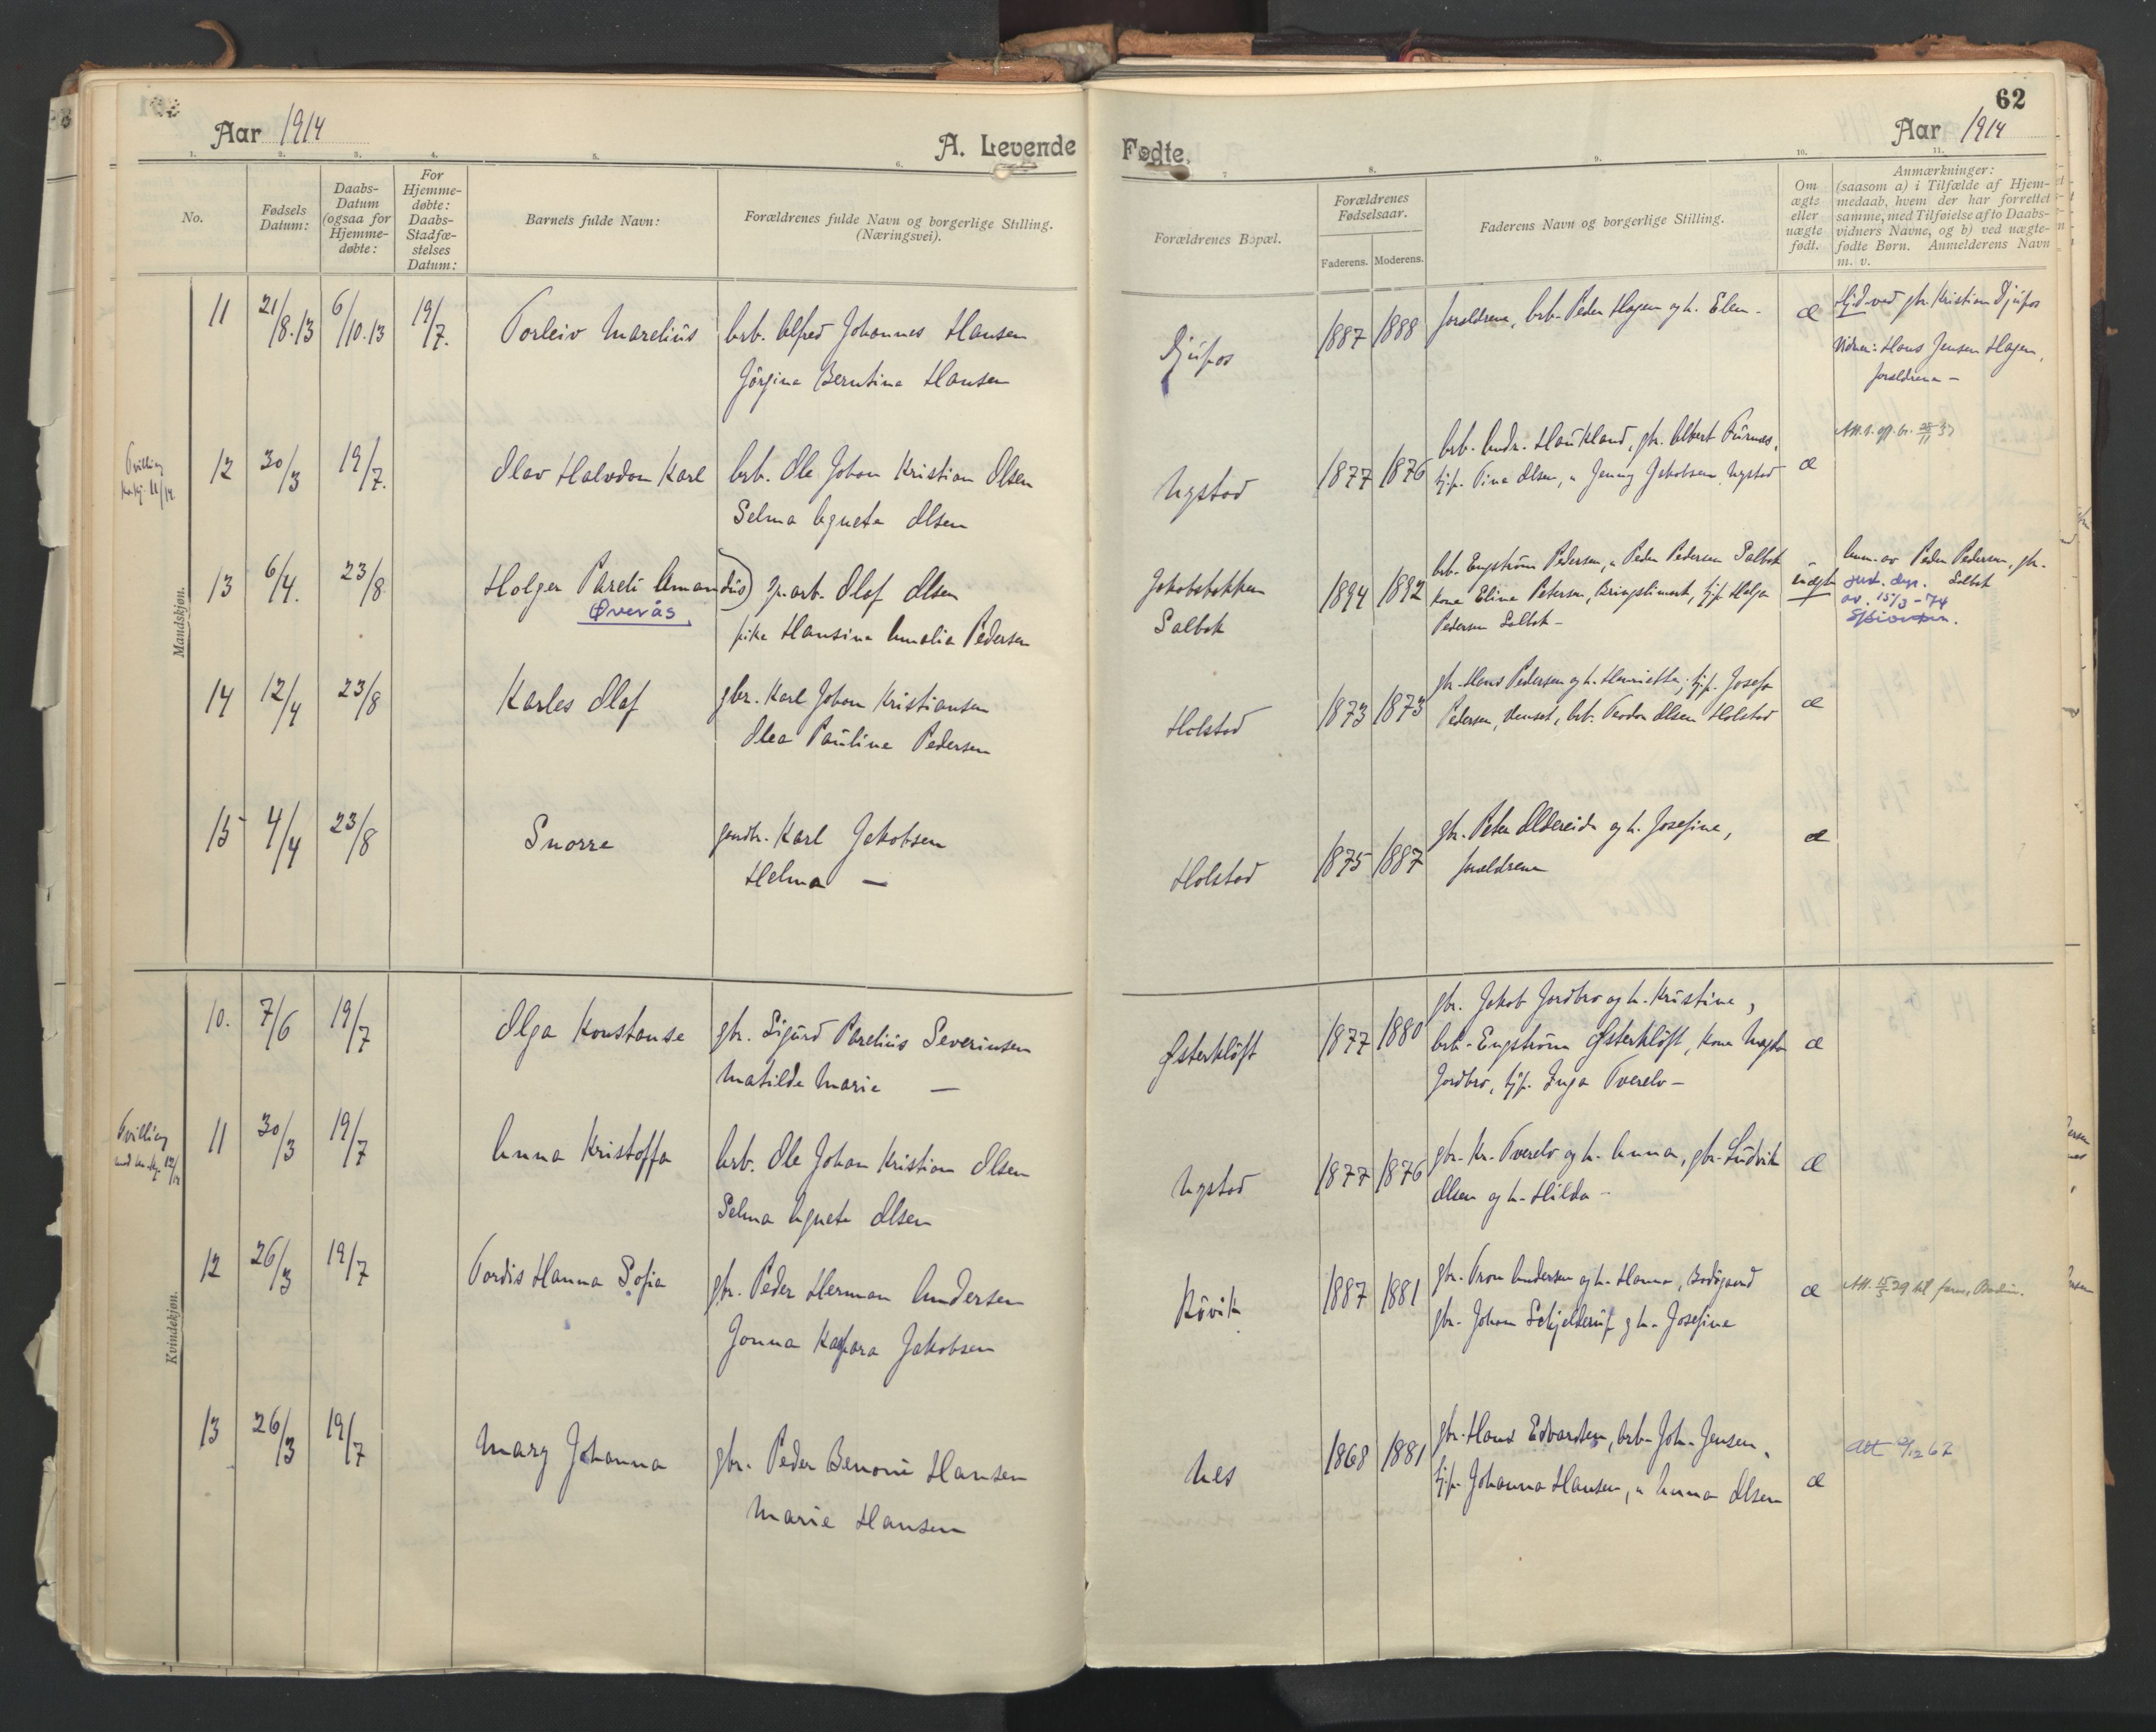 62
Aar 1914
A. Levende
Fødte.
Aar 1914
1. 2. 3. 4. 5. 6.
7 8. 9. 10. 11.
No.
Fødsels Datum:
Daabs-Datum (ogsaa for Hjemme-døbte:
For Hjemme-døbte: Daabs-Stadfæ-stelses Datum:
Barnets fulde Navn:
Forældrenes fulde Navn og borgerlige Stilling.
(Næringsvei).
Forældrenes Bopæl.
Forældrenes Fødselsaar.
Faderens. Moderens.
Faderens Navn og borgerlige Stilling.
Om ægte eller uægte født.
Anmærkninger:
(saasom a) i Tilfælde af Hjem-
medaab, hvem der har forrettet
samme, med Tilføielse af to Daabs-
vidners Navne, og b) ved uægte-
fødte Børn. Anmelderens Navn
m. v.
Mandskjøn.
11 21/8.13 6/10.13 19/7. Torleiv Marelius
brb. Alfred Johannes Hansen
Jörgine Berntine Hansen
Djupos 1887 1888
foraldrene, brb. Peder Hagen og h. Elen - æ
Hjd. ved gbr. Kristian Djupos
Vidner: Hans Jensen Hagen,
foraldrene -
Tvilling
12 30/3 19/7. Olav Halvdan Karl
brb. Ole Johan Kristian Olsen
Selma Agneta Olsen
Nystad 1877 1876
brb. Andr. Haukland, gbr. Albert Furnes,
tjp. Tina Olsen, " Jenny Jakobsen, Nystad æ
13 6/4. 23/8 Holger Pareli Amandus)
Øverås
arb. Olof Olsen
pike Hansine Amalia Pedersen
Jakobsbakken
Salbok
1894 1892
brb. Engström Pedersen, " Peder Pedersen Salbok
Kone Elina Petersen, tjp. Helga
Pedersen Salbok - uægte
Anm. av Peder Pedersen, gbr.
Just. dep. Salbok
av. 15/3-74
14 12/4 23/8 Karles Olaf
gbr. Karl Johan Kristiansen
Olea Pauline Pedersen
Holstad 1873 1873
gbr. Hans Pedersen og h. Henriette; tjp. Josefa
Pedersen, brb. Teodor Olsen Holstad æ
15 4/4 23/8 Snorre
Karl Jakobsen
Helma —
Holstad 1875 1887
gbr. Peter Oldereide og h. Josefine,
foraldrene æ
Kvindekjøn.
10. 7/6 19/7 Olga Konstanse
gbr. Sigurd Parelius Severinsen
Matilde Marie —
Østerkløft 1877 1880
gbr. Jakob Jordbro og h. Kristine,
brb. Engström Østerkløft, Kone
Jordbro, tjp. Inga Tverelv - æ
Tvilling
11 30/3 19/7 Anna Kristoffa
brb. Ole Johan Kristian Olsen
Selma Agneta Olsen
Nystad 1877 1876
gbr. Kr. Tverelv og h. Anna, gbr. Ludvik
Olsen og h. Hilda - æ
12 26/3 19/7 Tordis Hanna Sofia
gbr. Peder Herman Andersen
Jonna Kaspara Jakobsen
Røvik 1887 1881
gbr. Tron Andersen og h. Hanna, Bodøgaard
gbr. Johan Schjelderup og h. Josefine æ
Att. 15/3 29
13 26/3 19/7 Mary Johanna
gbr. Peder Benoni Hansen
Marie Hansen
Nes 1868 1881
gbr. Hans Edvardsen, brb. Joh. Jensen,
tjp. Johanna Hansen, " Anna Olsen æ